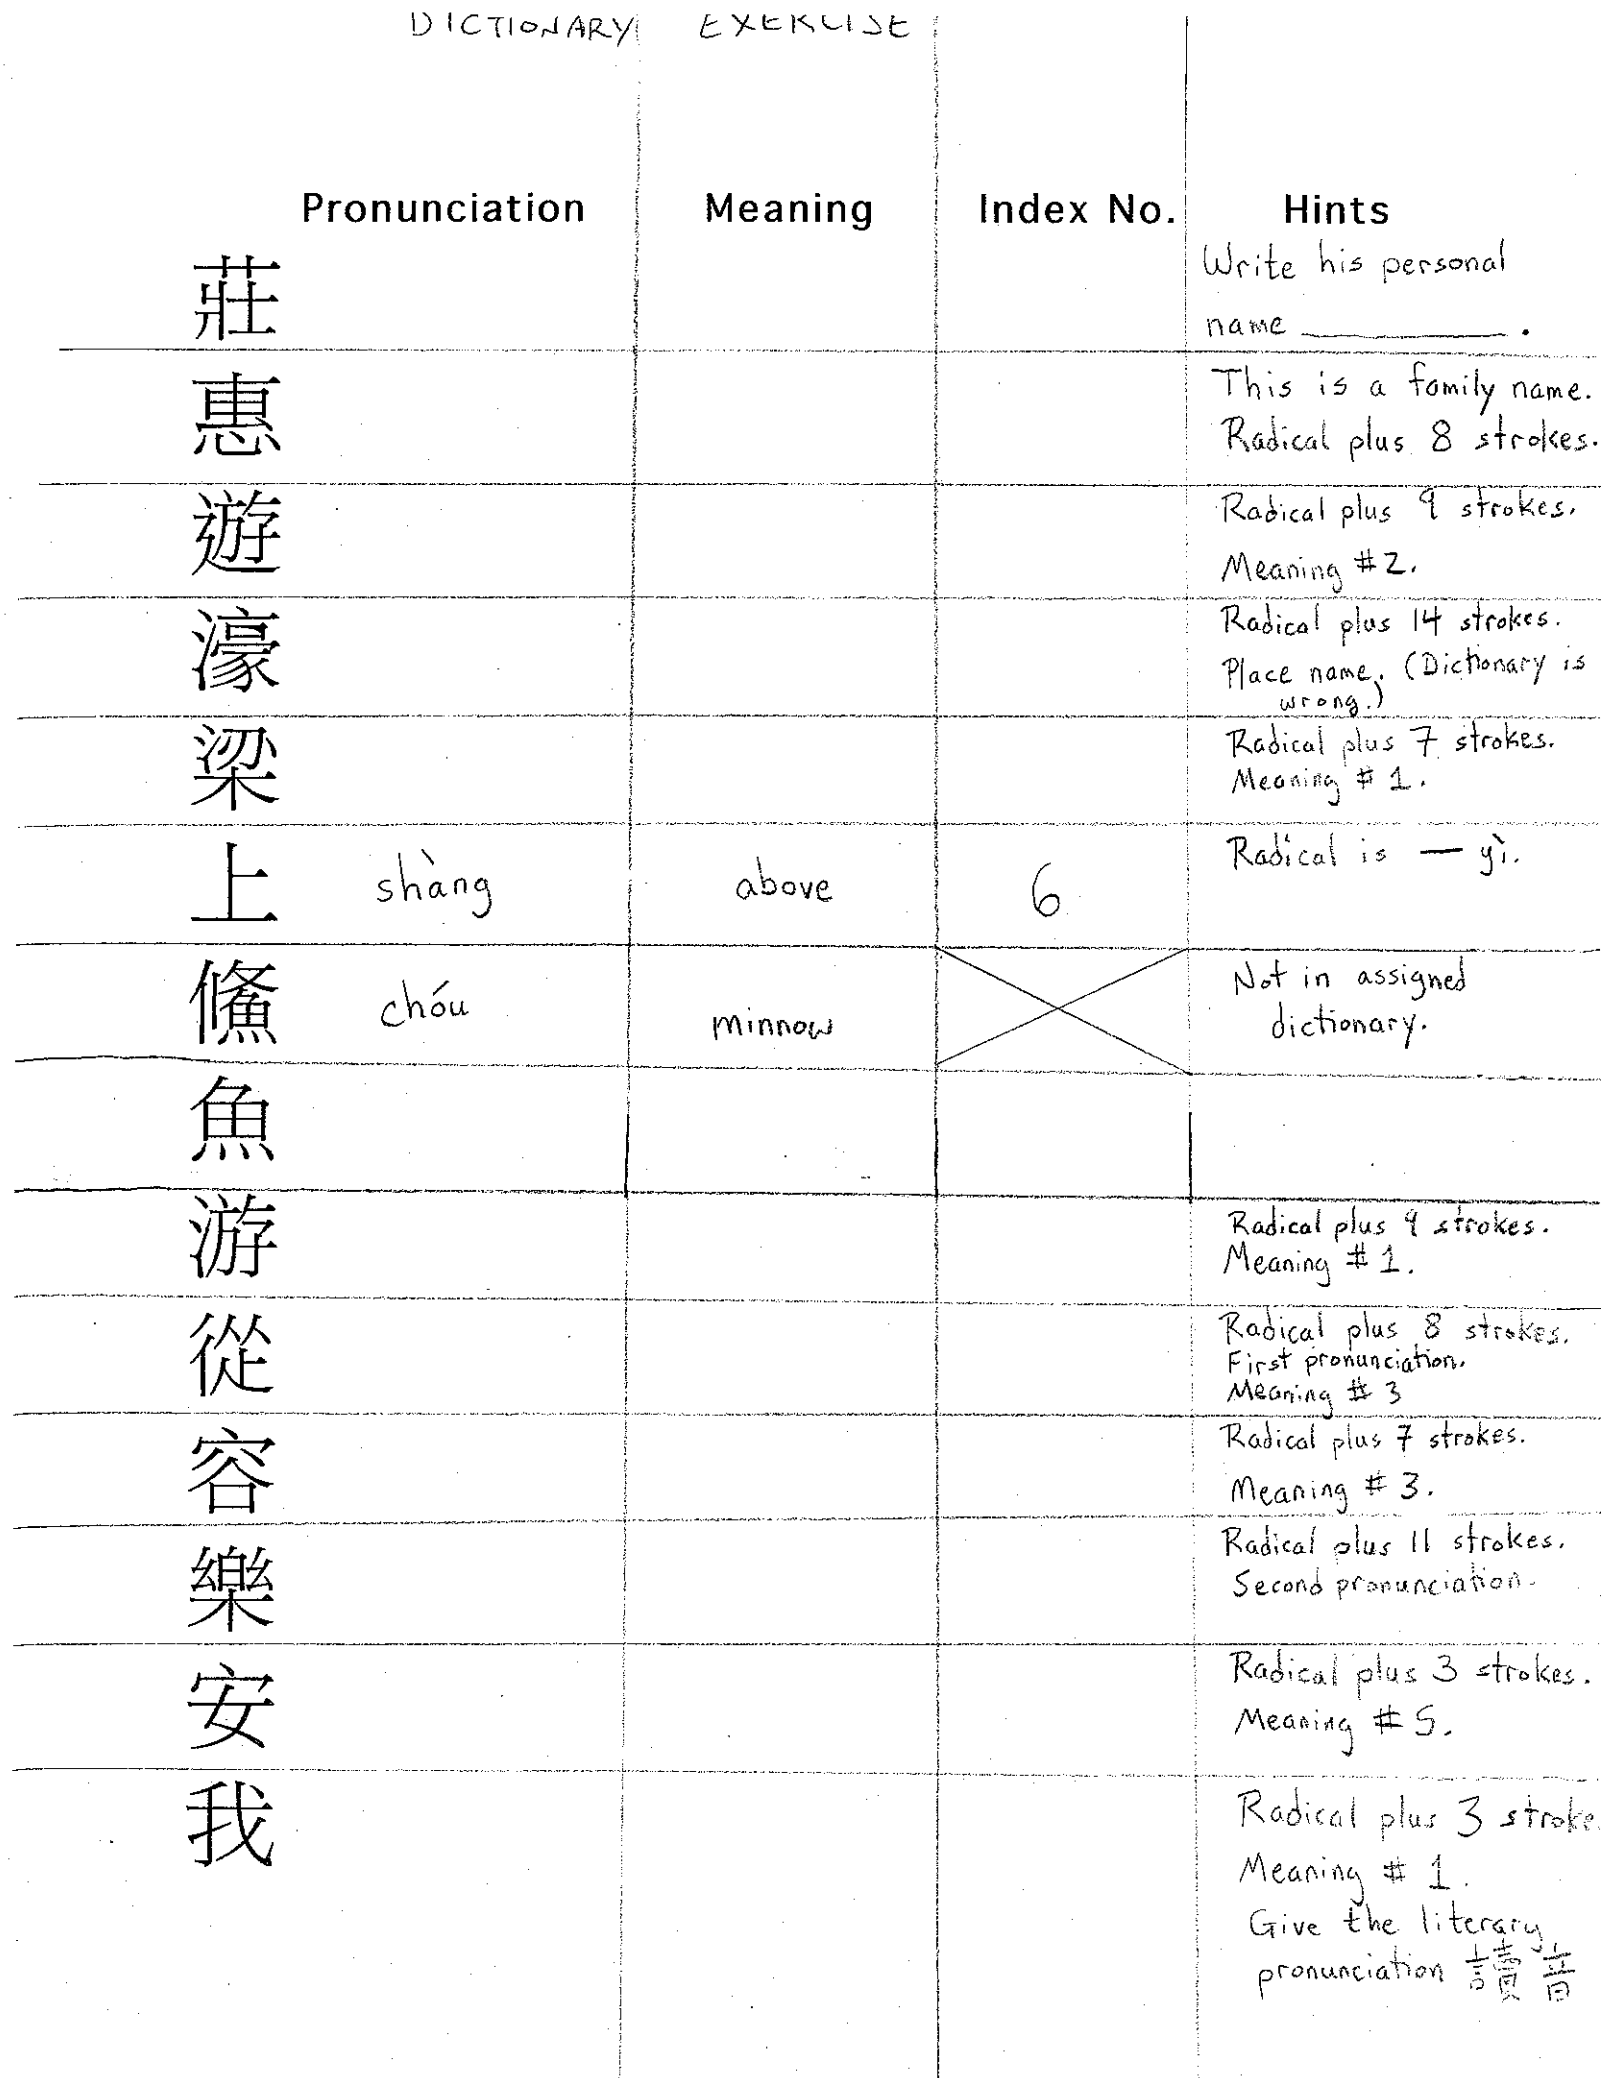 DICTIONARY EXERCISE
Pronunciation Meaning Index No. Hints
莊 Write his personal
name ________ .
惠 This is a family name.
Radical plus 8 strokes.
遊 Radical plus 9 strokes.
Meaning #2.
濠 Radical plus 14 strokes.
Place name. (Dictionary is
wrong.)
梁 Radical plus 7 strokes.
Meaning # 1.
上 shàng above 6 Radical is 一 yì.
鯈 chóu minnow Not in assigned
dictionary.
魚
游 Radical plus 9 strokes.
Meaning # 1.
從 Radical plus 8 strokes.
First pronunciation.
Meaning # 3
容 Radical plus 7 strokes.
Meaning # 3.
樂 Radical plus 11 strokes.
Second pronunciation.
安 Radical plus 3 strokes.
Meaning # 5.
我 Radical plus 3 stroke
Meaning # 1.
Give the literary
pronunciation 讀音